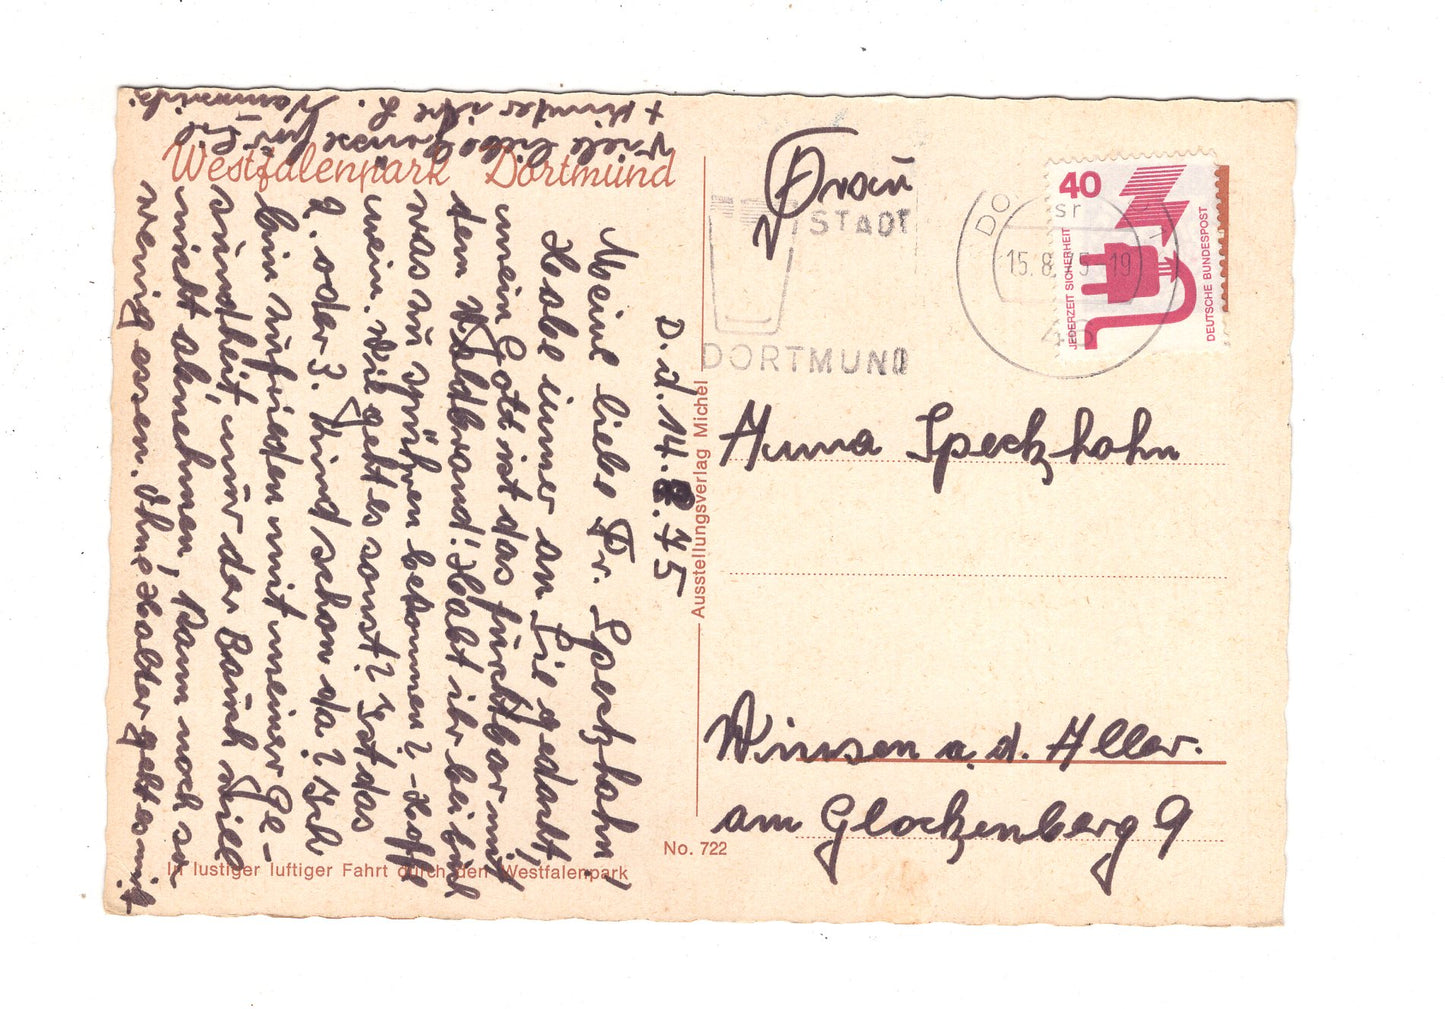 Westfalenpark Dortmund
D. d. 14.8.75
Meine liebe Fr. Speckhahn!
Habe immer an Sie gedacht,
mein Gott ist das furchtbar mit
dem Waldbrand! Habt ihr bei Euch
was zu spüren bekommen? - Hoff
nein. Wie geht es sonst? Ist das
2. oder 3. Kind schon da? Ich
bin zufrieden mit meiner Ge-
sundheit, nur der Bauch will
nicht abnehmen, kann noch so
wenig essen. Ihne Halter geht es mit.
Viele liebe Grüsse für Sie
+ Kinder ihre L.
In lustiger luftiger Fahrt durch den Westfalenpark
Ausstellungsverlag Michel
No. 722
Frau
STADT
DORTMUND
DO
sr
15.8.75-19
46
40
JEDERZEIT SICHERHEIT
DEUTSCHE BUNDESPOST
Anna Speckhahn
Winsen a. d. Aller.
am Glockenberg 9